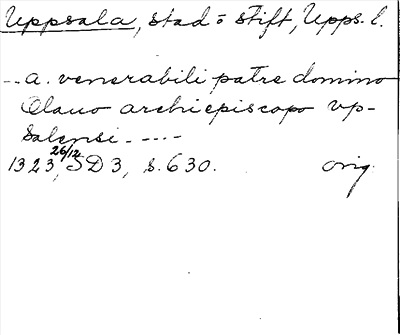 Uppsala, stad o stift, Upps. l.
-- a. venerabili patre domino
Olauo archiepiscopo vp-
salensi. ----
1323 26/12, SD 3, s. 630. orig.